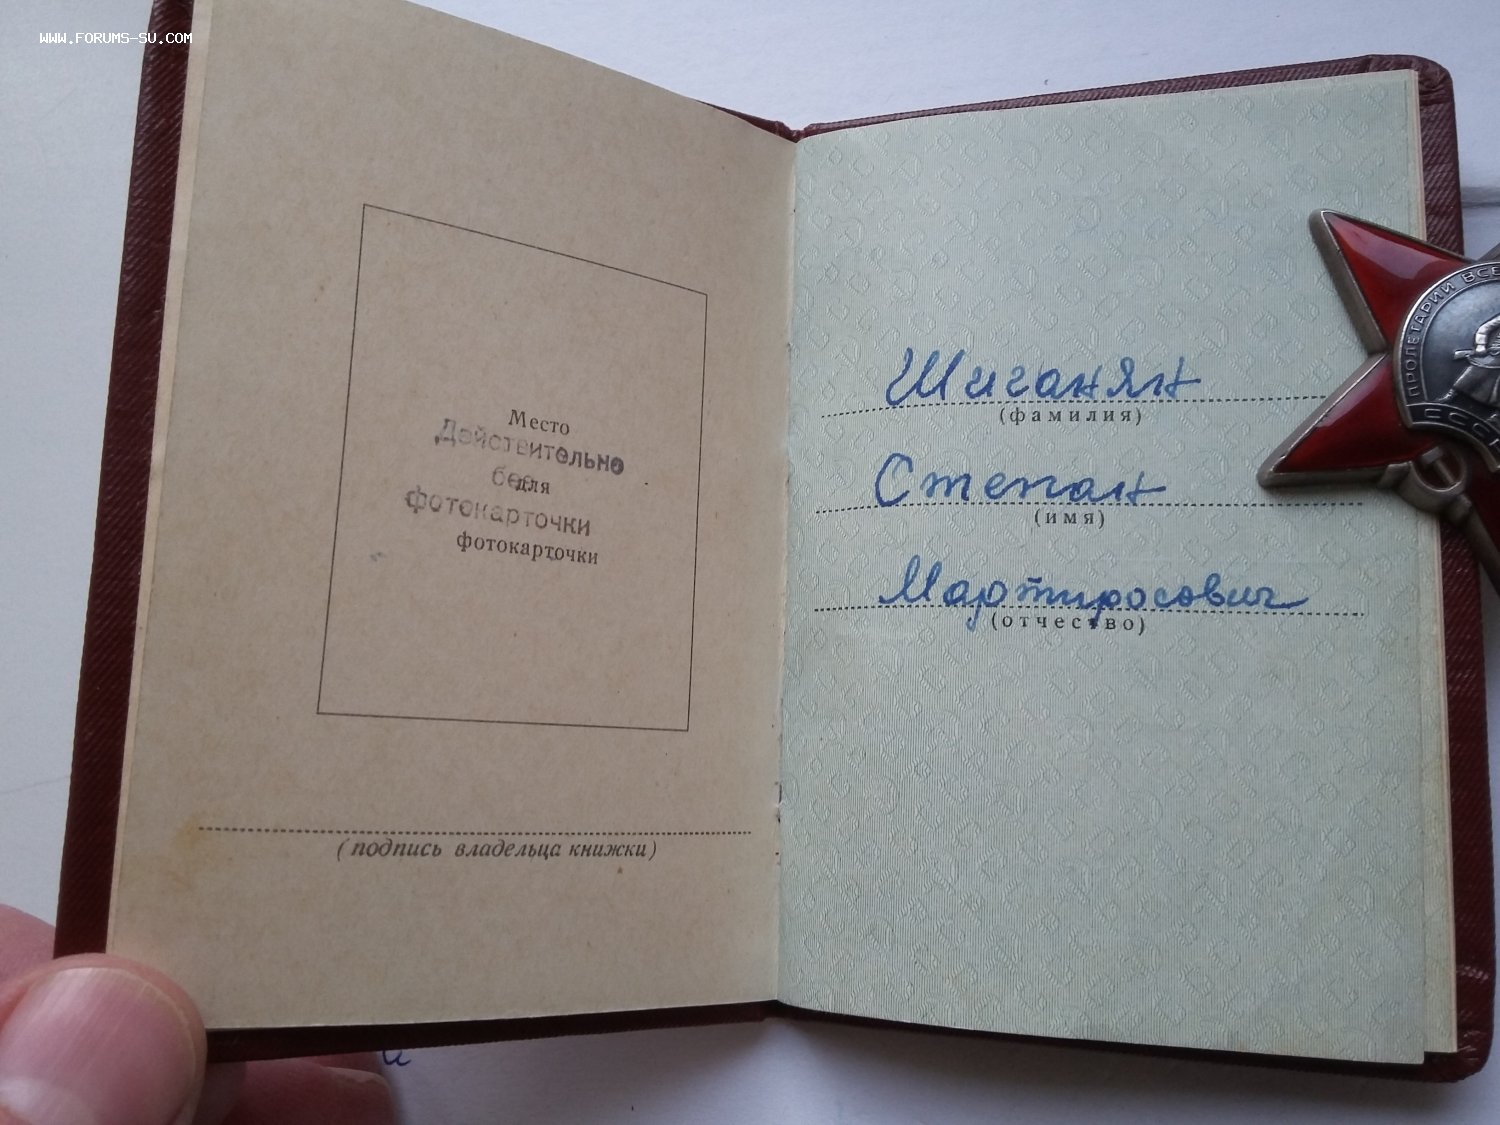 WWW.FORUMS-SU.COM
Место
Действительно
без
для
фотокарточки
фотокарточки
(подпись владельца книжки)
Шиганян
(фамилия)
Степан
(имя)
Мартиросович
(отчество)
ПРОЛЕТАРИИ ВСЕ
СССР